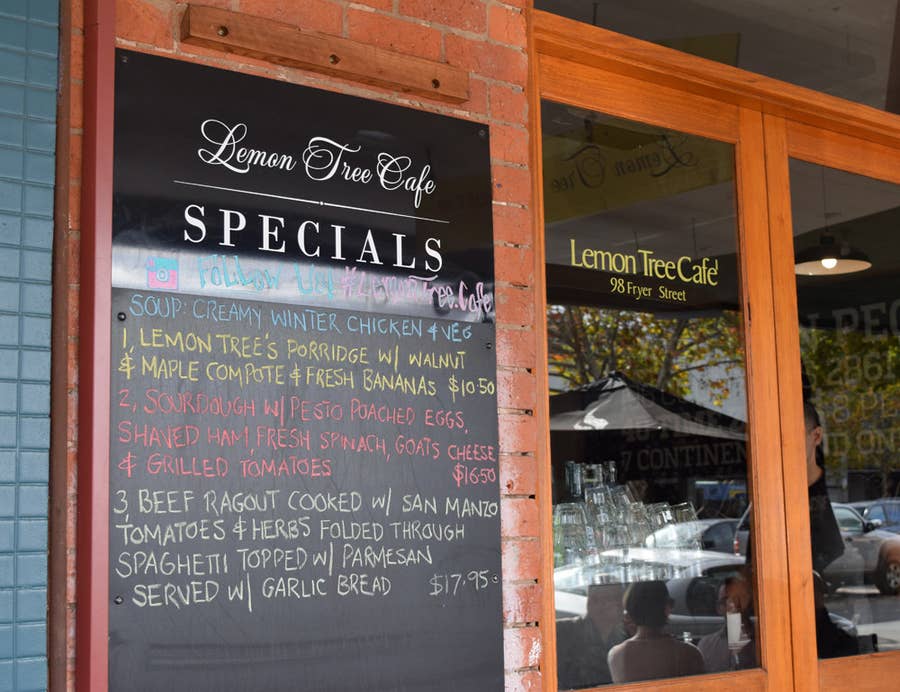 Lemon Tree Cafe
SPECIALS
Follow Us! #LemonTree.Cafe
SOUP: CREAMY WINTER CHICKEN & VEG
1, LEMON TREE'S PORRIDGE W/ WALNUT
& MAPLE COMPOTE & FRESH BANANAS $10.50
2, SOURDOUGH W/ PESTO POACHED EGGS,
SHAVED HAM, FRESH SPINACH, GOATS CHEESE
& GRILLED TOMATOES $16.50
3, BEEF RAGOUT COOKED W/ SAN MANZO
TOMATOES & HERBS FOLDED THROUGH
SPAGHETTI TOPPED W/ PARMESAN
SERVED W/ GARLIC BREAD $17.95
Lemon Tree
Lemon Tree Cafe
98 Fryer Street
7 CONTINEN